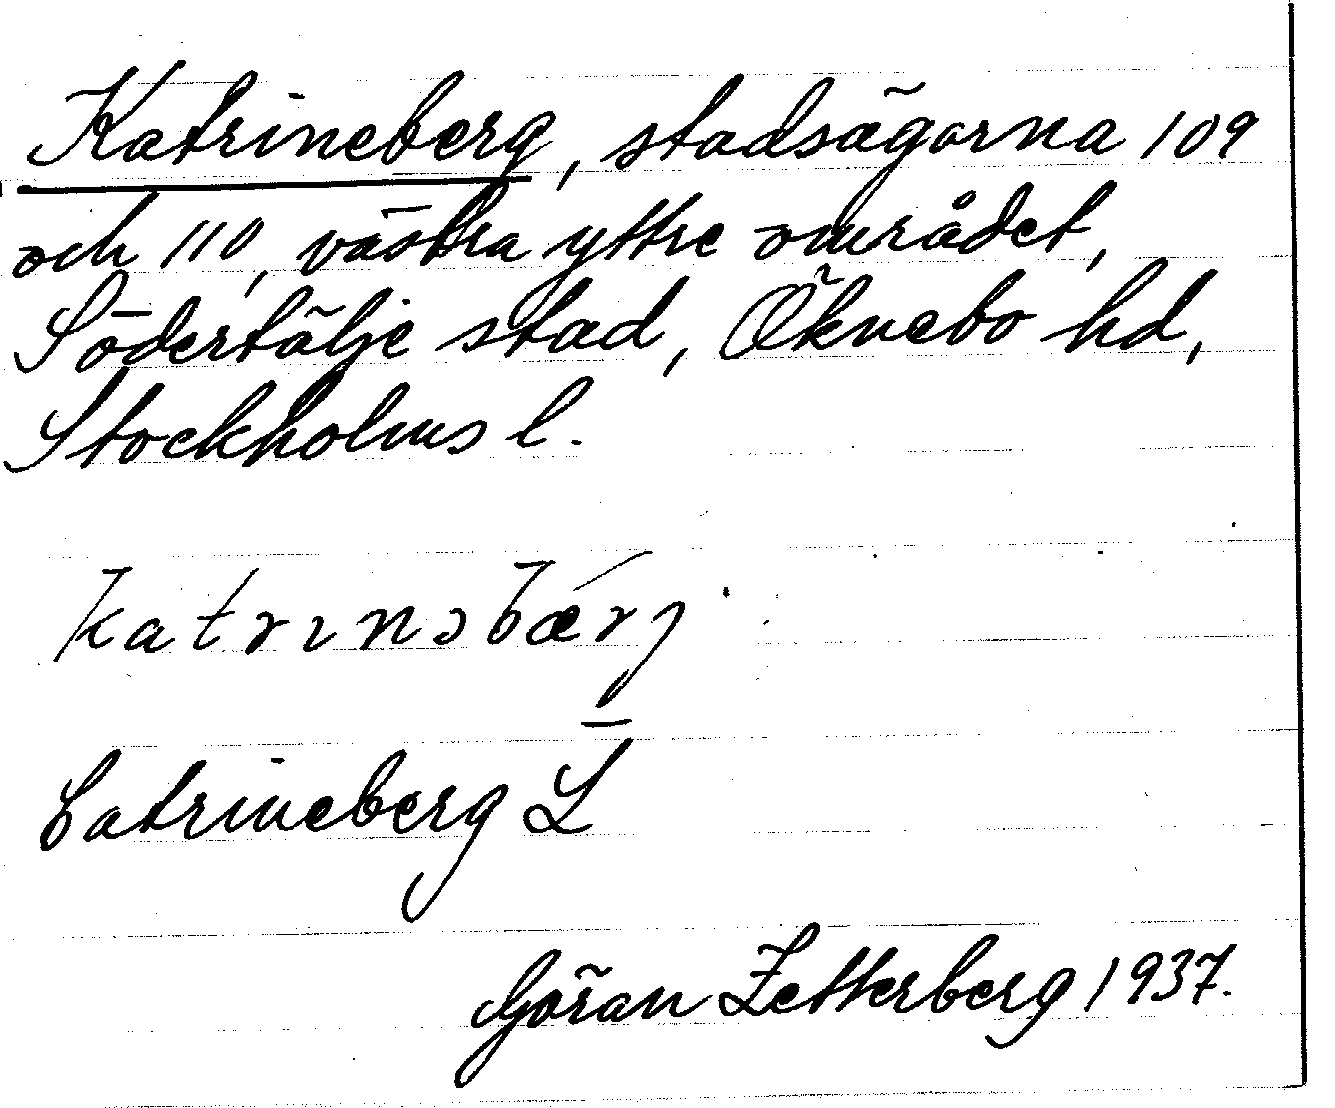 Katrineberg, stadsägorna 109
och 110, västra yttre området,
Södertälje stad, Öknebo hd,
Stockholms l.
katrınəbærj
Catrineberg L
Göran Zetterberg 1937.